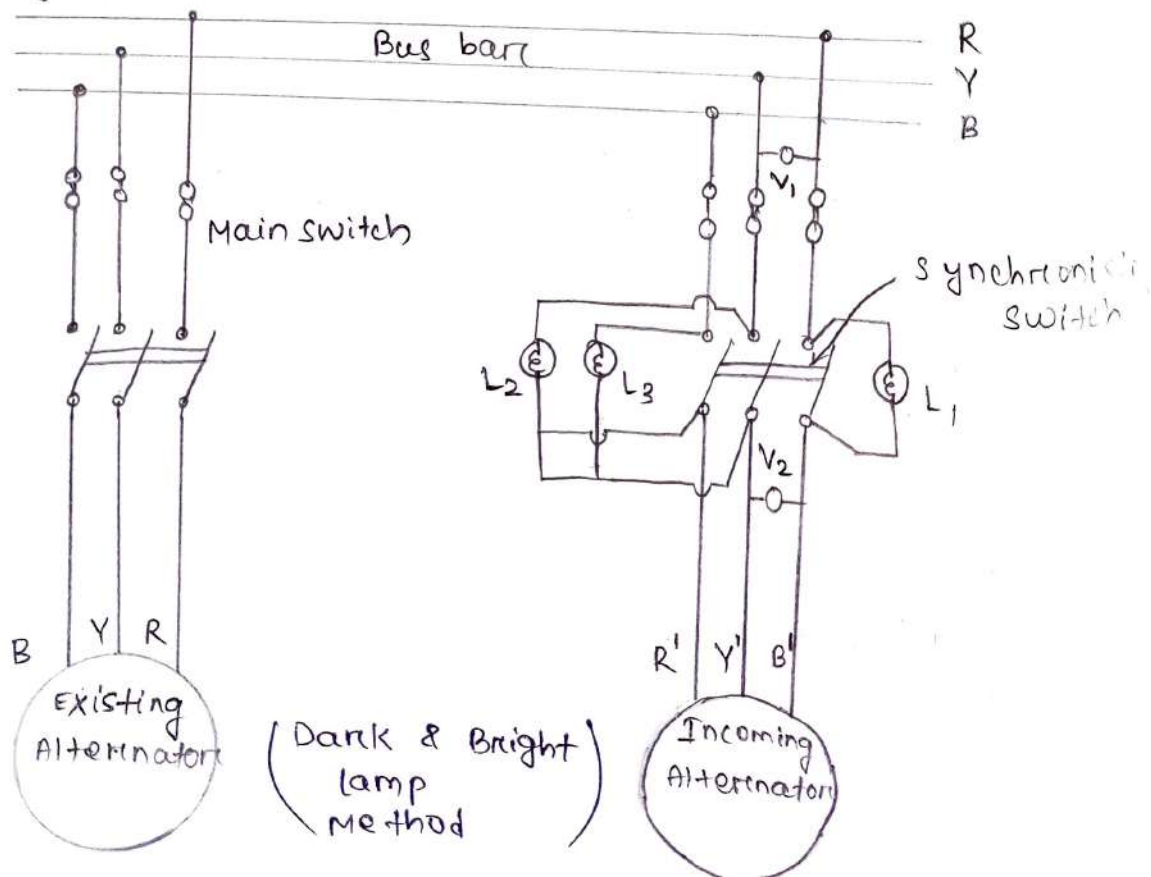 R
Bus bar
Y
B
V1
Main switch
switch
L2
L3
L1
V2
B
Y
R
R'
Y'
B'
Existing
Alternator
(Dark & Bright
lamp
Method)
Incoming
Alternator